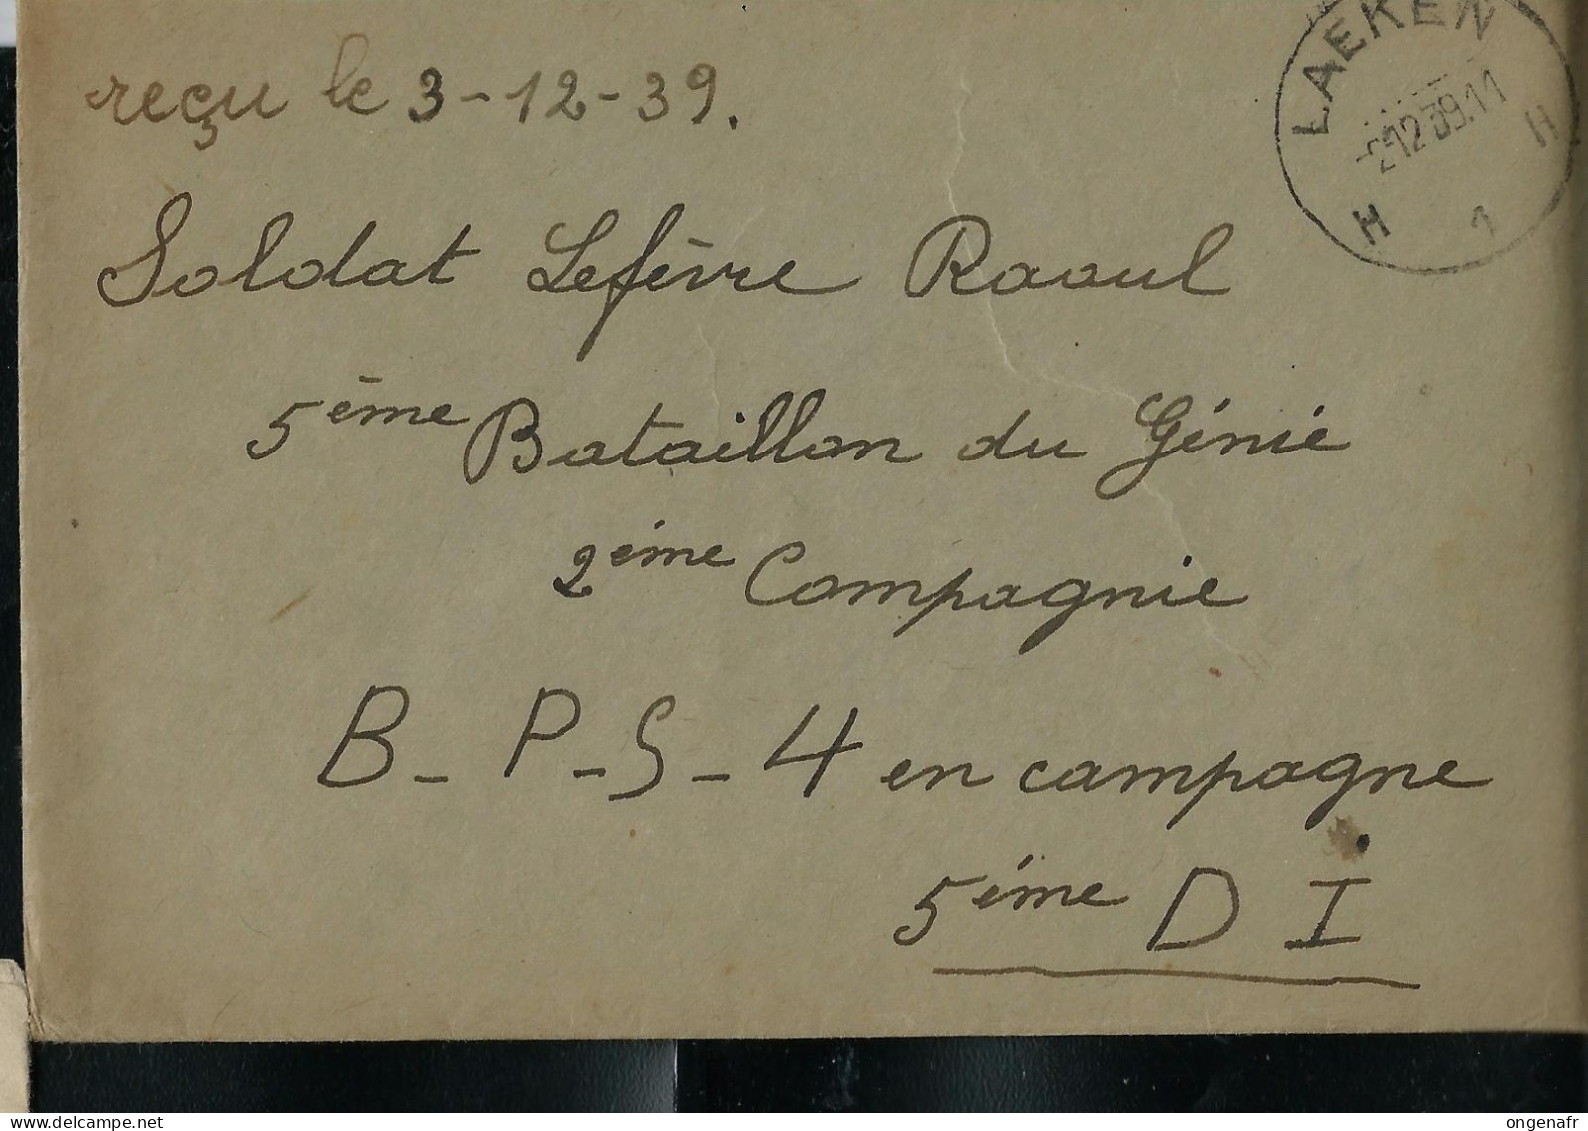 LAEKEN
-2 12 39.11
H 1 H
reçu le 3-12-39.
Soldat Lefèvre Raoul
5ème Bataillon du Génie
2ème Compagnie
B-P-S-4 en campagne
5ème D I
www.delcampe.net
ongenafr